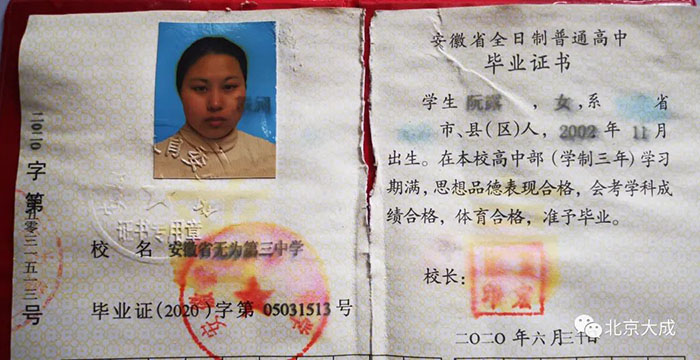 二〇二〇字第
五〇三一五一三号
证书专用章
校 名 安徽省无为第三中学
毕业证(2020)字第 05031513 号
安徽省全日制普通高中
毕业证书
学生 阮 ,女,系 省
市、县(区)人, 2002 年 11 月
出生。在本校高中部(学制三年)学习
期满,思想品德表现合格,会考学科成
绩合格,体育合格,准予毕业。
校长:
二〇二〇 年 六 月 三十 日
北京大成